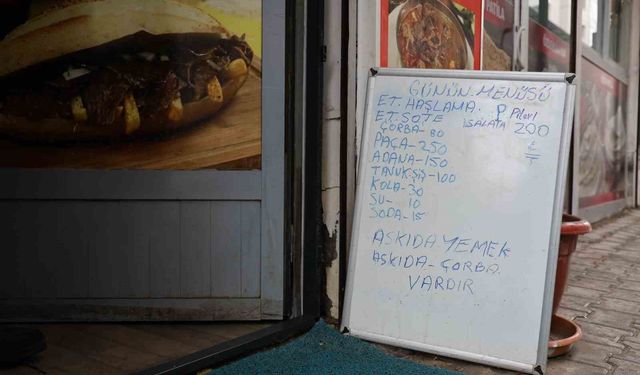 GÜNÜN MENÜSÜ
ET. HAŞLAMA.
ET. SOTE P. Pilavı
SALATA 200
ÇORBA - 80 ₺
PAÇA - 250
ADANA - 150
TAVUK ŞİŞ - 100
KOLA - 30
SU - 10
SODA - 15
ASKIDA YEMEK
ASKIDA - ÇORBA.
VARDIR